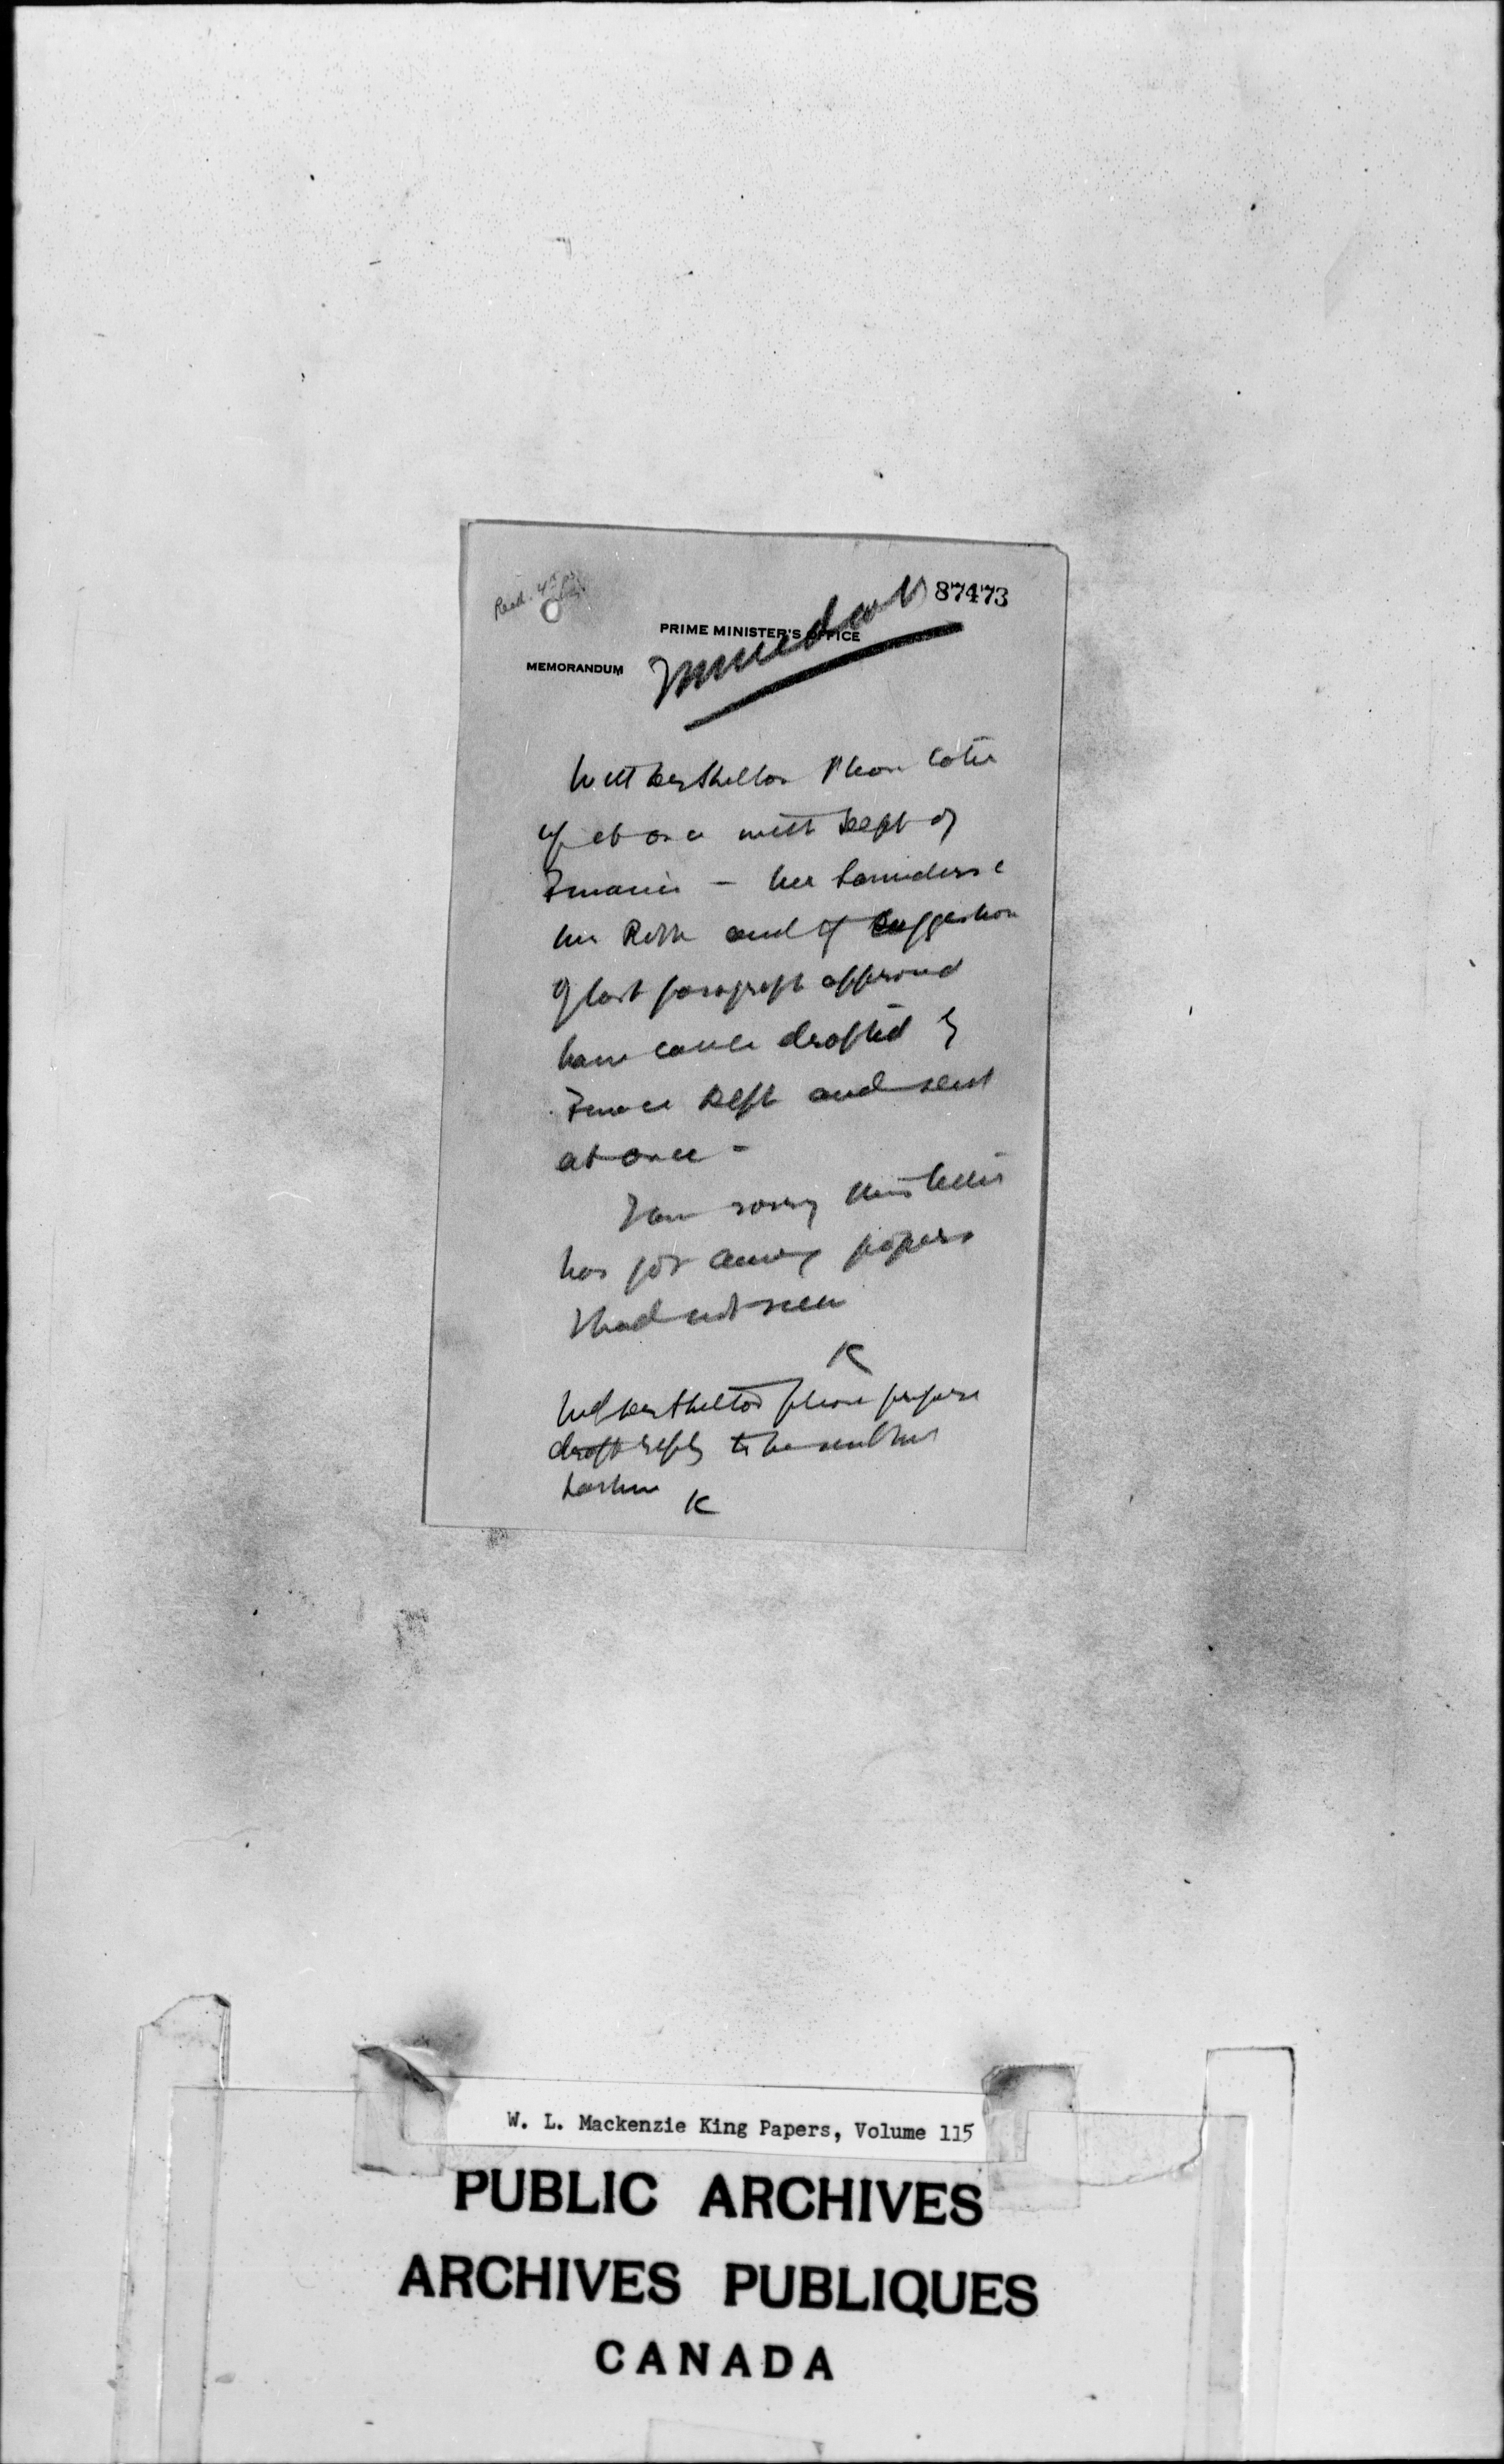 Read.
87473
PRIME MINISTER'S OFFICE
Immediate
MEMORANDUM
Will Dr Skelton please take
up at once with Dept of
Finance – Mr Saunders &
Mr Robb and if suggestion
of last paragraph approved
have cable drafted by
Finance Dept and sent
at once –
I am sorry this letter
has got among papers
I had not seen
K
Will Dr Skelton please prepare
draft reply to be sent Mr
Larkin K
W. L. Mackenzie King Papers, Volume 115
PUBLIC ARCHIVES
ARCHIVES PUBLIQUES
CANADA